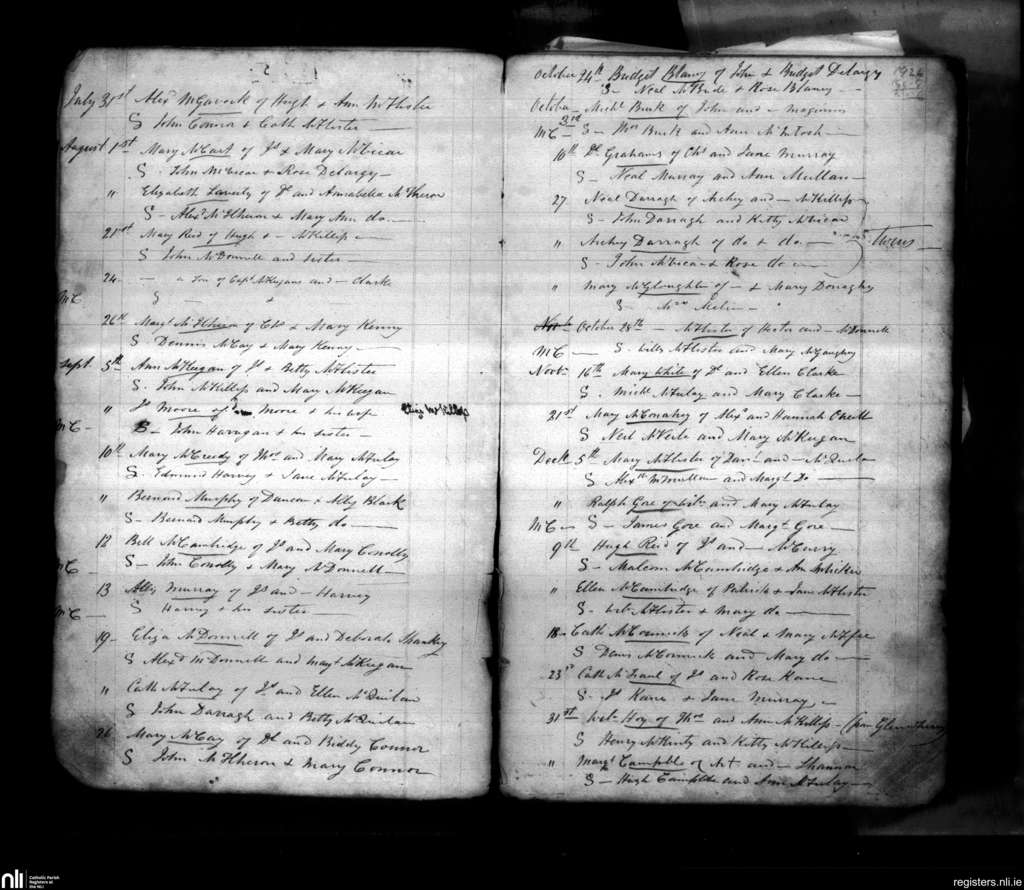 July 31st Alexr McGavock of Hugh & Ann
S John Connor & Cath McAlister
August 1st Mary McCart of Js & Mary McVicar
S. John McVicar & Rose Delargy
" Elizabeth Laverty of Dl and Annabella McIlheron
S- Alexr McIlheron & Mary Ann do.
21st Mary Reid of Hugh & - McKillop
S John McDonnell and sister
24 - a Son of Capt McKeegans and - Clarke
MC S - &
26th Margt McIlheron of Chs & Mary Kenny
S Dennis McCay & Mary Kenny
Sept. 5th Ann McKeegan of Js & Betty McAlister
S. John McKillop and Mary McKeegan
" Js Moore of Moore & his wife Eliza McKillop
MC - S- John Harragan & his sister
10th Mary McCreedy of Thos and Mary McAulay
S. Edmund Harvey & Jane McAulay
" Bernard Murphy of Duncan & Ally Black
S- Bernard Murphy & Betty do
12 Bell McCambridge of Js and Mary Conolly
MC - S- John Conolly & Mary McDonnell
13 Ally Murray of Js and - Harvey
MC - S Harvey & his sister
19- Eliza McDonnell of Js and Deborah Sharkey
S Alexr McDonnell and Margt McKeegan
" Cath McAulay of Js and Ellen McQuilan
S John Darragh and Betty McQuilan
26 Mary McCay of Dl and Biddy Connor
S John McIlheron & Mary Connor
October 24th Bridget Blaney of John & Bridget Delargy
S- Neal McBride & Rose Blaney
October 3rd Michl Burk of John and - Maginnis
MC - S- Thos Burk and Ann McIntosh
10th Dl Grahams of Chs and Jane Murray
S- Neal Murray and Ann Mullan
27 Neal Darragh of Archey and - McKillop
S- John Darragh and Kitty McVicar
" Archey Darragh of do & do Twins
S- John McVicar & Rose do
" Mary McGloughlin of - & Mary Donaghy
S-
October 28th - McAlister of Hector and - McDonnell
MC - S. Willm McAlister and Mary McGaughey
Novbr 16th Mary White of Dl and Ellen Clarke
S. Michl McAulay and Mary Clarke
21st Mary McConaghy of Alexr and Hannah O'Neill
S Neil McNeile and Mary McKeegan
Decbr 5th Mary McAlister of Danl and - McQuilan
S- Alexr McMullan and Margt Do
" Ralph Gore of Willm and Mary McAulay
MC - S- James Gore and Margt Gore
9th Hugh Reid of Js and - McCurry
S- Malcom McCambridge & Ann McVicker
" Ellen McCambridge of Patrick & Jane McAlister
S- Willm McAlister & Mary do
18- Cath McCormick of Neil & Mary McAfee
S Denis McCormick and Mary do
23rd Cath McFaul of Js and Rose Kane
S- Js Kane & Jane Murray
31st Willm Hoy of Thos and Ann McKillop
S Henry McKinty and Kitty McKillop
" Margt Campble of At and - Shannon
S- Hugh Campble and Ann McAulay
nli
Catholic Parish
Registers at
the NLI
registers.nli.ie